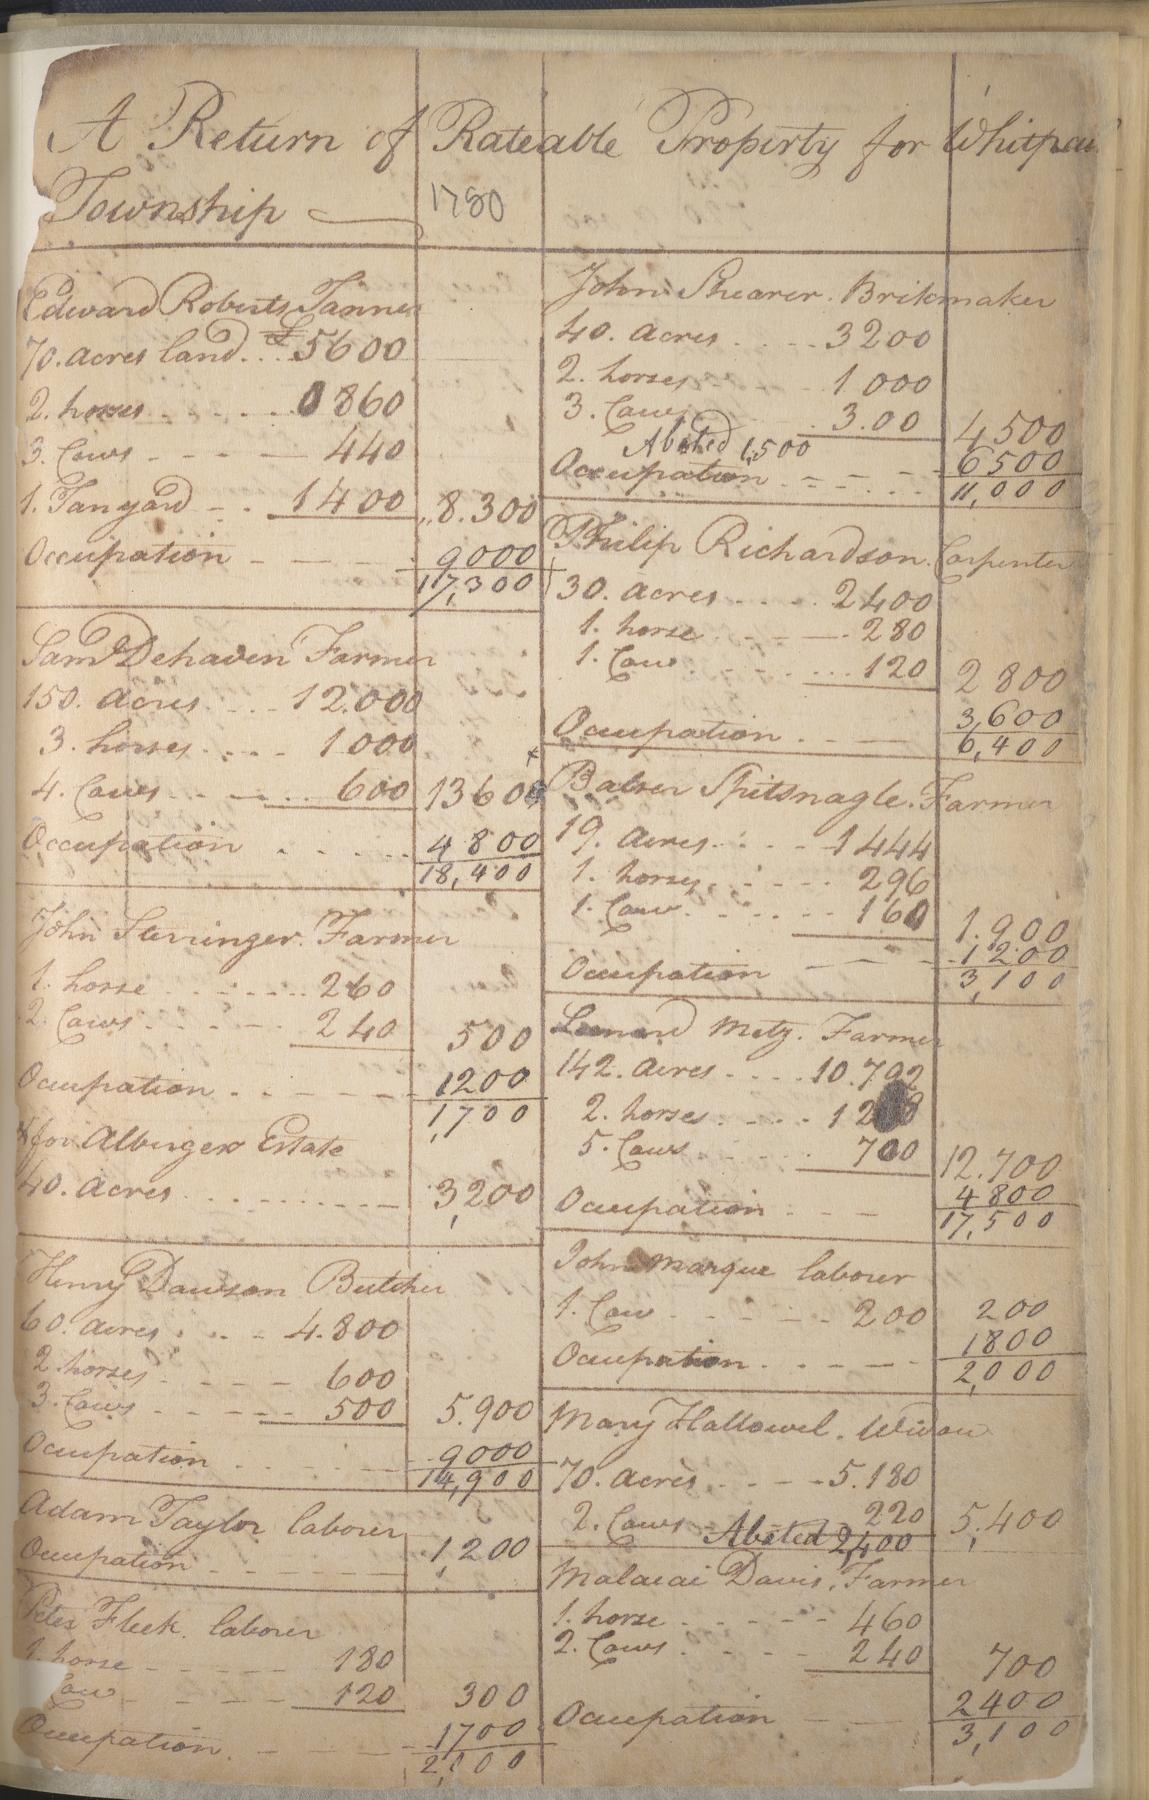 A Return of Rateable Property for Whitpa
Township 1780
Edward Roberts Tanner
70. acres land . . £5600
2. horses . . . . . 0860
3. Cows - - - - 440
1. Tanyard - . 1400 8.300
Occupation - - - - 9000
17,300
Saml Dehaven Farmer
150. acres . . . . 12.000
3. horses . . . . 1000
4. Cows . . - . . . 600 13600
Occupation . . . . . 4800
18,400
John Sterringer. Farmer
1. horse . . . . . . 260
2. Cows . . . . . 240 500
Ocupation . . - - - - 1200
1,700
* for Alburgers Estate
40. acres . . . . . . . . 3,200
Henry Dawson Butcher
60. acres . . . . 4.800
2. horses . - - - 600
3. Cows - - - - 500 5.900
Ocupation . . . . . 9000
14,900
Adam Taylor labourer
Ocupation . . . . . 1,200
Peter Fleek. labourer
1. horse - - - - 180
Cow - - - - 120 300
Ocupation . - - - - 1700
2,000
John Shearer. Brikmaker
40. acres . . . . 3200
2. horses - - - - 1000
3. Cows . 3.00 4500
Abated 1,500
Occupation . - - . . . 6500
11,000
Philip Richardson. Carpenter
30. acres . . . . 2400
1. horse . . - - . 280
1. Cow . - - . . . . 120 2800
Occupation . . - - 3,600
6,400
*
Balser Spitsnagle. Farmer
19. acres . . . - 1444
1. horses . . . - - 296
1. Cow . . . . . - - 160 1.900
Occupation - - - 1200
3,100
Lenard Metz. Farmer
142. acres . . . . 10.792
2. horses . . . . 12 8
5. Cows . . . . . 700 12.700
Occupation . - - 4800
17,500
John Marque labourer
1. Cow . - - - - 200 200
Ocupation . . - - - 1800
2,000
Mary Hallowel. Widow
70. acres . . - - 5.180
2. Cows - - - 220 5,400
Abated 2,400
Malacai Davis. Farmer
1. horse . . - - - 460
2. Cows . . - - - 240 700
Ocupation - - 2400
3,100